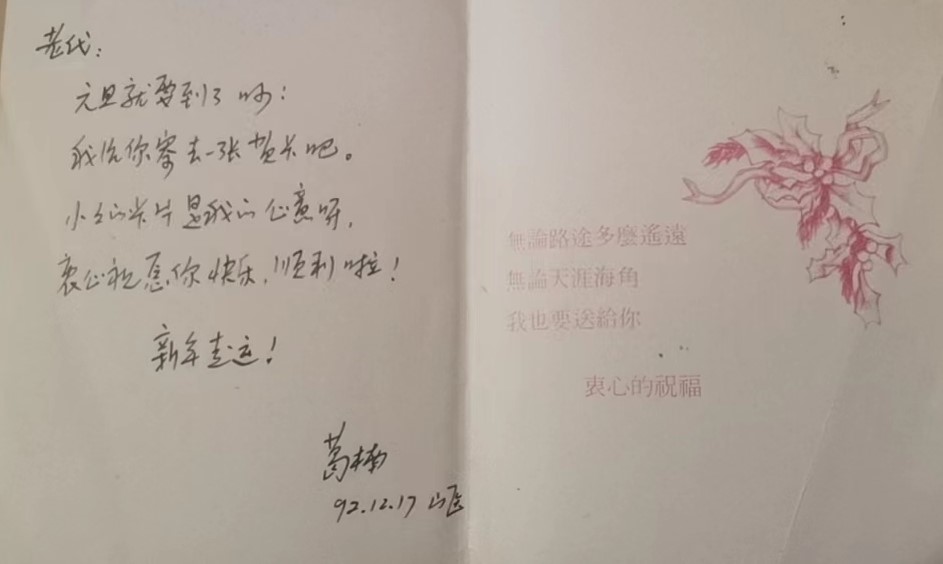 老代：
元旦就要到了哟：
我给你寄去一张贺卡吧。
小小的卡片是我的心意呀，
衷心祝愿你快乐，顺利啦！
新年走运！
葛楠
92.12.17 山医
無論路途多麼遙遠
無論天涯海角
我也要送給你
衷心的祝福